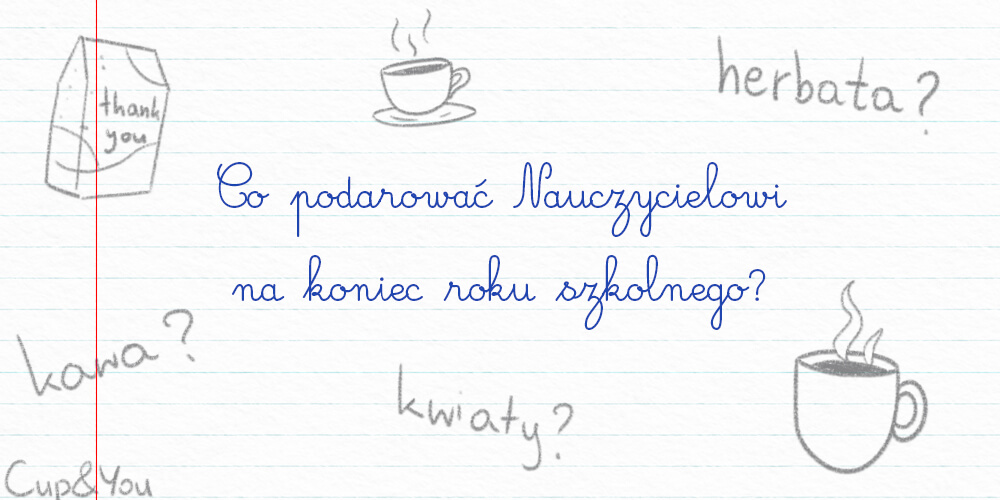 thank
you
herbata?
Co podarować Nauczycielowi
na koniec roku szkolnego?
kawa?
kwiaty?
Cup&You